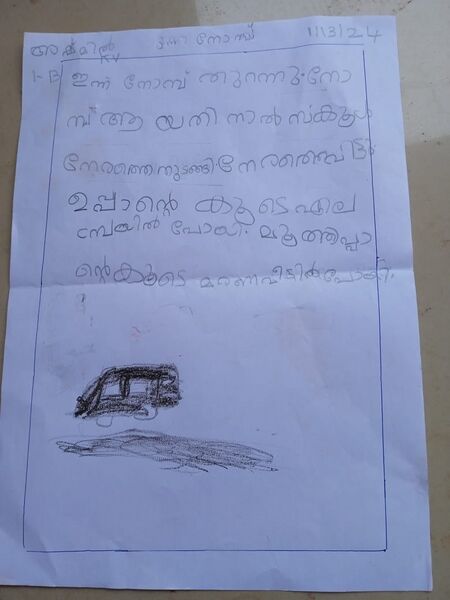 അഷ്മിൽ KV ഒന്നാം നോമ്പ് 11/3/24
1-B ഇന്ന് നോമ്പ് തുറന്നു. നോ
മ്പ് ആ യതി നാൽ സ്കൂൾ
നേരത്തെ തുടങ്ങി നേരത്തെ വിട്ടു
ഉപ്പാന്റെ കൂടെ എല
മ്പ്രയിൽ പോയി. മൂത്താപ്പാ
ന്റെ കൂടെ മരണ വീട്ടിൽ പോയി.